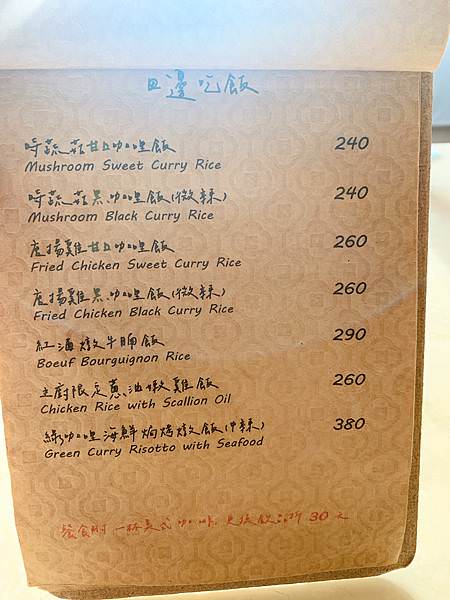 田邊吃飯
時蔬菇甘口咖哩飯 240
Mushroom Sweet Curry Rice
時蔬菇黑咖哩飯(微辣) 240
Mushroom Black Curry Rice
唐揚雞甘口咖哩飯 260
Fried Chicken Sweet Curry Rice
唐揚雞黑咖哩飯(微辣) 260
Fried Chicken Black Curry Rice
紅酒燉牛腩飯 290
Boeuf Bourguignon Rice
主廚限定蔥油嫩雞飯 260
Chicken Rice with Scallion Oil
綠咖哩海鮮焗烤燉飯(中辣) 380
Green Curry Risotto with Seafood
餐食附一杯美式咖啡,更換飲品折30元